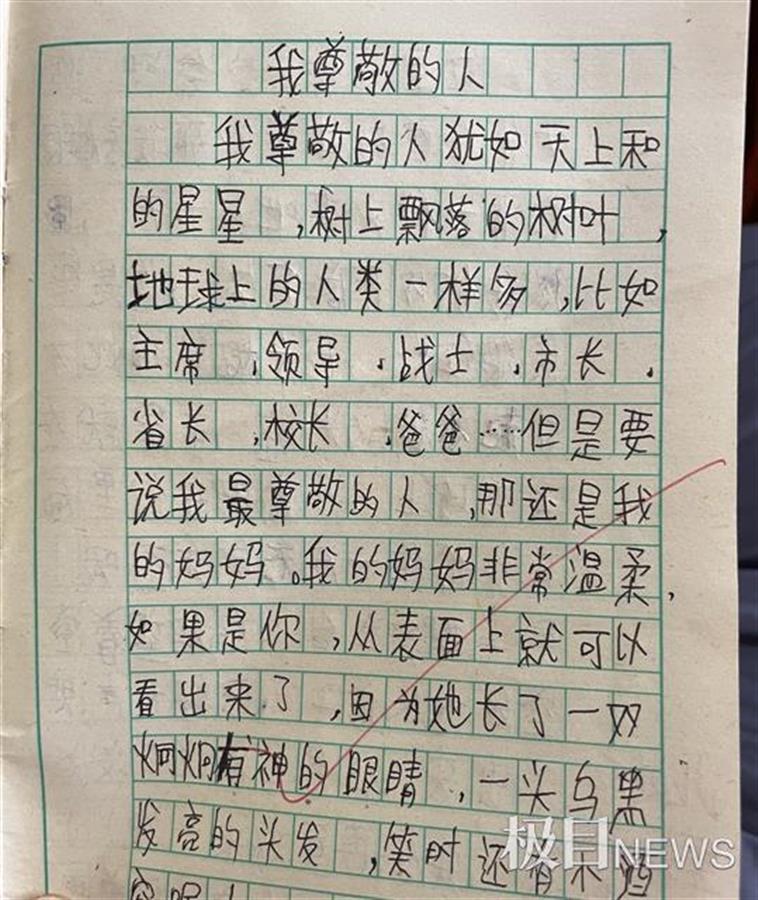 我尊敬的人
我尊敬的人犹如天上和
的星星,树上飘落的树叶,
地球上的人类一样多,比如
主席、领导、战士、市长、
省长、校长、爸爸……但是要
说我最尊敬的人,那还是我
的妈妈。我的妈妈非常温柔,
如果是你,从表面上就可以
看出来了,因为她长了一双
炯炯有神的眼睛,一头乌黑
发亮的头发,笑时还有
极目NEWS